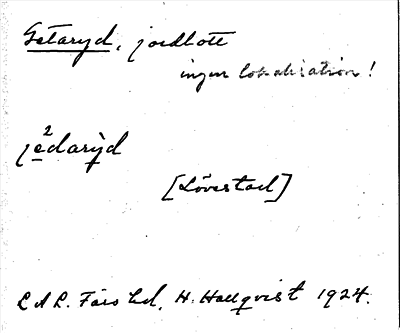 Getaryd, jordlott
ingen lokalisation!
je²darỳd
[Lövestad]
L.A.L. Färs hd, H. Hallqvist 1924.